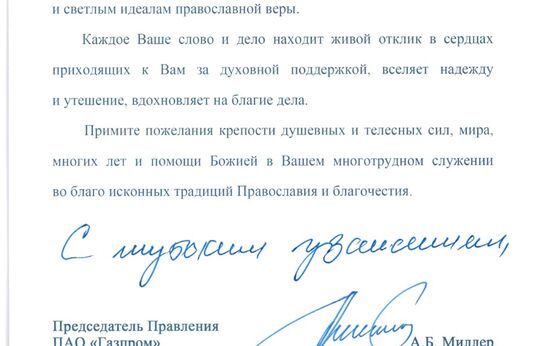 и светлым идеалам православной веры.
Каждое Ваше слово и дело находит живой отклик в сердцах
приходящих к Вам за духовной поддержкой, вселяет надежду
и утешение, вдохновляет на благие дела.
Примите пожелания крепости душевных и телесных сил, мира,
многих лет и помощи Божией в Вашем многотрудном служении
во благо исконных традиций Православия и благочестия.
С глубоким уважением,
Председатель Правления
ПАО «Газпром» А.Б. Миллер